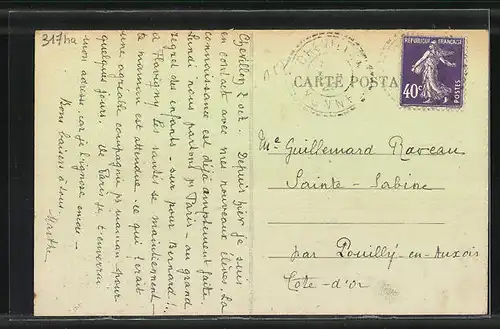 317ha
Chevillon 2 oct Depuis hier je suis
en contact avec mes nouveaux élèves. La
connaissance est déjà amplement faite.
Lundi nous partons pr Paris - au grand
regret des enfants - sur pour Bernard!..
à Flavigny les santés se maintiennent -
te maman est attendue. ce qui ferait
une agréable compagnie pr maman pour
quelques jours. De Paris je t'enverrai
mon adresse car je l'ignore encore -
Bons baisers à tous.
CHEVILLON
YONNE
CARTE POSTA
REPUBLIQUE FRANÇAISE
40c
POSTES
Me Guillemard Raveau
Sainte-Sabine
par Pouilly-en-Auxois
Côte-d'Or